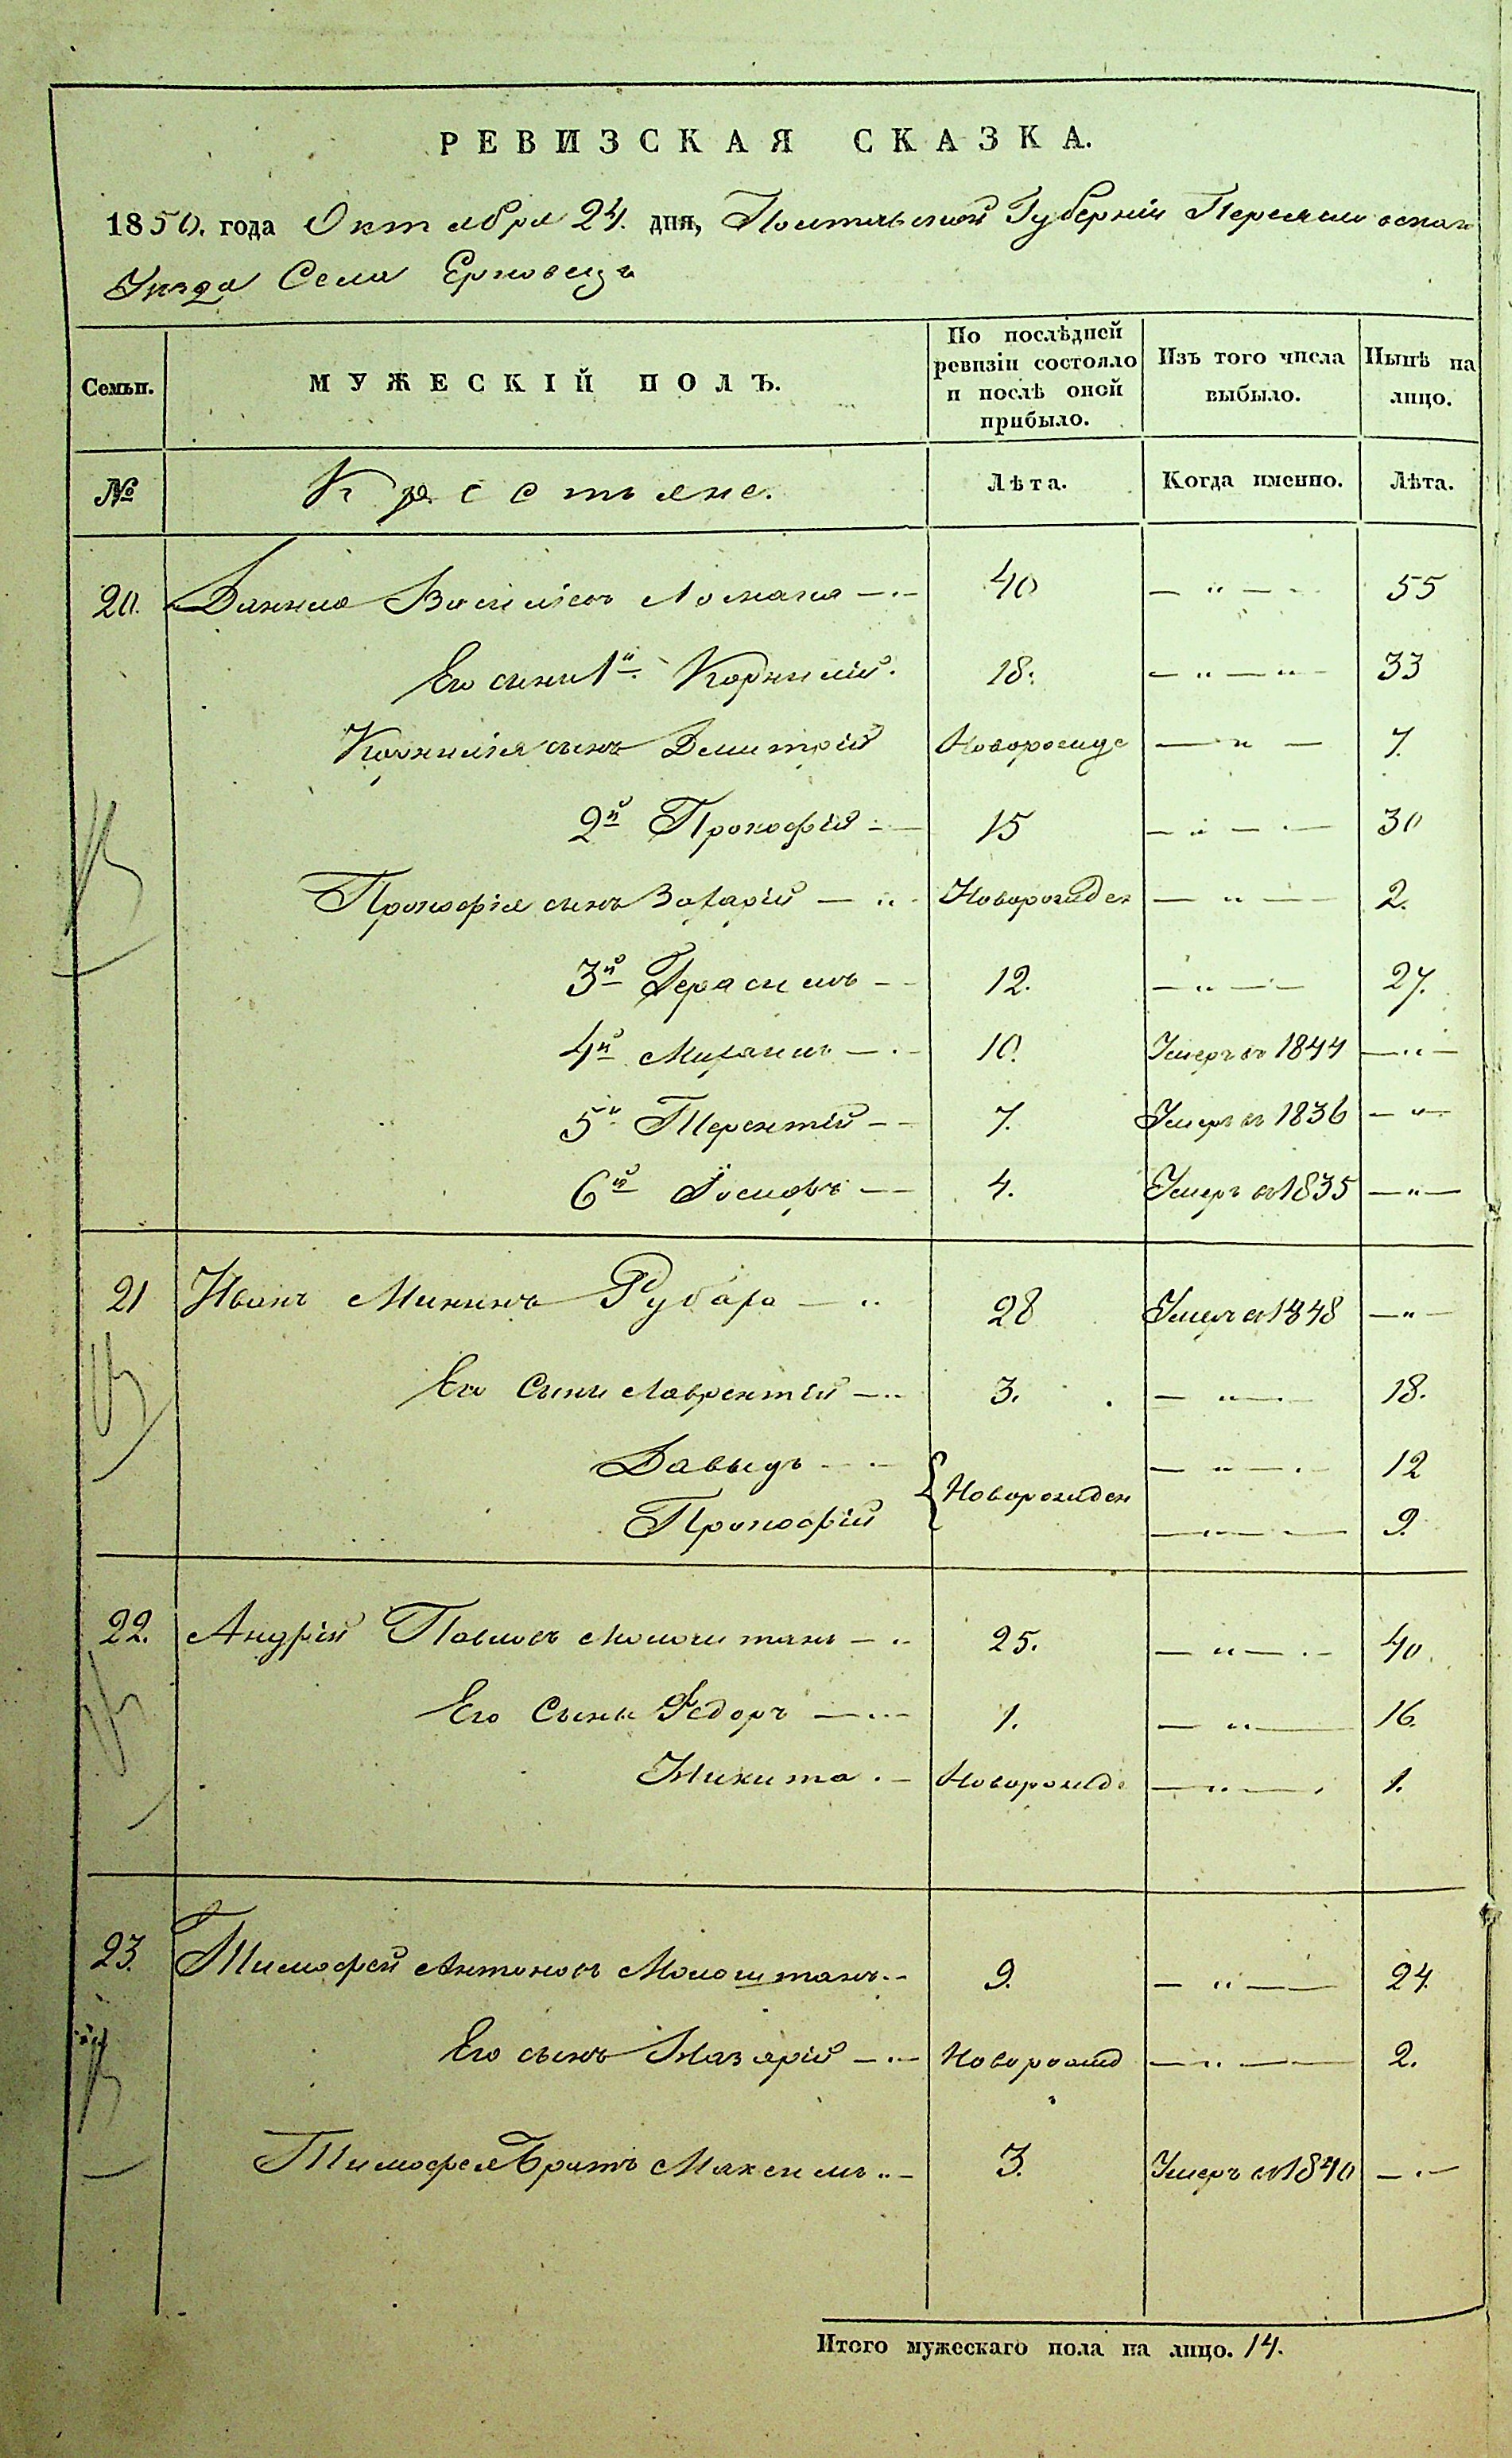 РЕВИЗСКАЯ СКАЗКА.
1850. года Октября 24. дня, Полтавской Губерніи Переяславскаго
Уезда Села Ерковецъ
Семьи. МУЖЕСКІЙ ПОЛЪ. По послѣдней ревизіи состояло и послѣ оной прибыло. Изъ того числа выбыло. Нынѣ на лицо.
№ Крестьяне. Лѣта. Когда именно. Лѣта.
20. Данила Васильевъ 40 — „ — 55
Его сыни 1й Корнилій. 18. — „ — „ — 33
Корнилія сынъ Демитрій Новорожде — „ — 7.
2й Прокофій — 15 — „ — 30
Прокофія сынъ Захарій — „ Новорожден — „ — 2.
3й Герасимъ — 12. — „ — 27.
4й Михаилъ — 10. Умеръ въ 1844 — „ —
5й Терентій — 7. Умеръ въ 1836 — „ —
6й Іосифъ — 4. Умеръ въ 1835 — „ —
21 Иванъ Мининъ Рубаха — „ 28 Умеръ въ 1848 — „ —
Его Сыни Лаврентій — 3. — „ — 18.
Давыдъ — { Новорожден — „ — 12
Прокофій — „ — 9.
22. Андрій Павловъ Молоштанъ — „ 25. — „ — 40.
Его Сыни Федоръ — 1. — „ — 16.
Никита — Новорожд — „ — 1.
23. Тимофей Антоновъ Молоштанъ — 9. — „ — 24.
Его сынъ Назарій — Новорожд — „ — 2.
Тимофея Братъ Максимъ „ — 3. Умеръ въ 1840 — „ —
Итого мужескаго пола на лицо. 14.